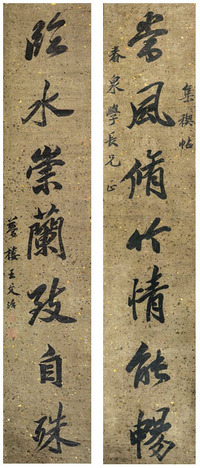 集禊帖
當風脩竹情能暢
春泉學長兄正
臨水崇蘭致自殊
夢樓王文治